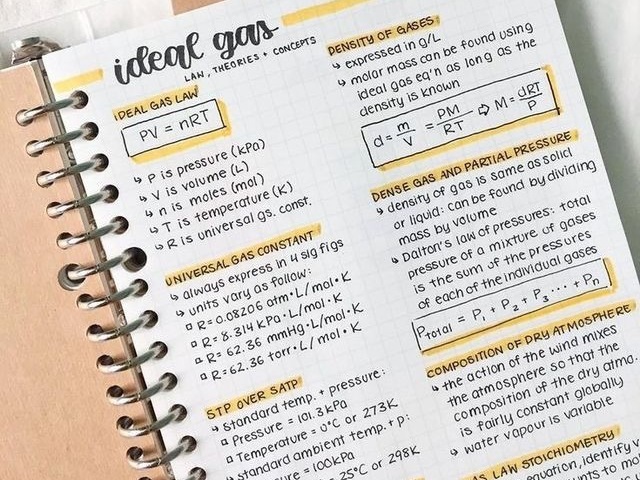 ideal gas
LAW, THEORIES + CONCEPTS
IDEAL GAS LAW
PV = nRT
↳ P is pressure (kPa)
↳ V is volume (L)
↳ n is moles (mol)
↳ T is temperature (K)
↳ R is universal gs. const.
UNIVERSAL GAS CONSTANT
↳ always express in 4 sig figs
↳ units vary as follow:
▫ R = 0.08206 atm·L/mol·K
▫ R = 8.314 kPa·L/mol·K
▫ R = 62.36 mmHg·L/mol·K
▫ R = 62.36 torr·L/mol·K
STP OVER SATP
↳ standard temp. + pressure:
▫ Pressure = 101.3 kPa
▫ Temperature = 0°C or 273K
↳ standard ambient temp. + p:
= 100kPa
= 25°C or 298K
DENSITY OF GASES
↳ expressed in g/L
↳ molar mass can be found using
ideal gas eq'n as long as the
density is known
d = m/V = PM/RT ⇨ M = dRT/P
DENSE GAS AND PARTIAL PRESSURE
↳ density of gas is same as solid
or liquid: can be found by dividing
mass by volume
↳ Dalton's law of pressures: total
pressure of a mixture of gases
is the sum of the pressures
of each of the individual gases
Ptotal = P₁ + P₂ + P₃ ... + Pn
COMPOSITION OF DRY ATMOSPHERE
↳ the action of the wind mixes
the atmosphere so that the
composition of the dry atmo.
is fairly constant globally
↳ water vapour is variable
GAS LAW STOICHIOMETRY
equation, identify